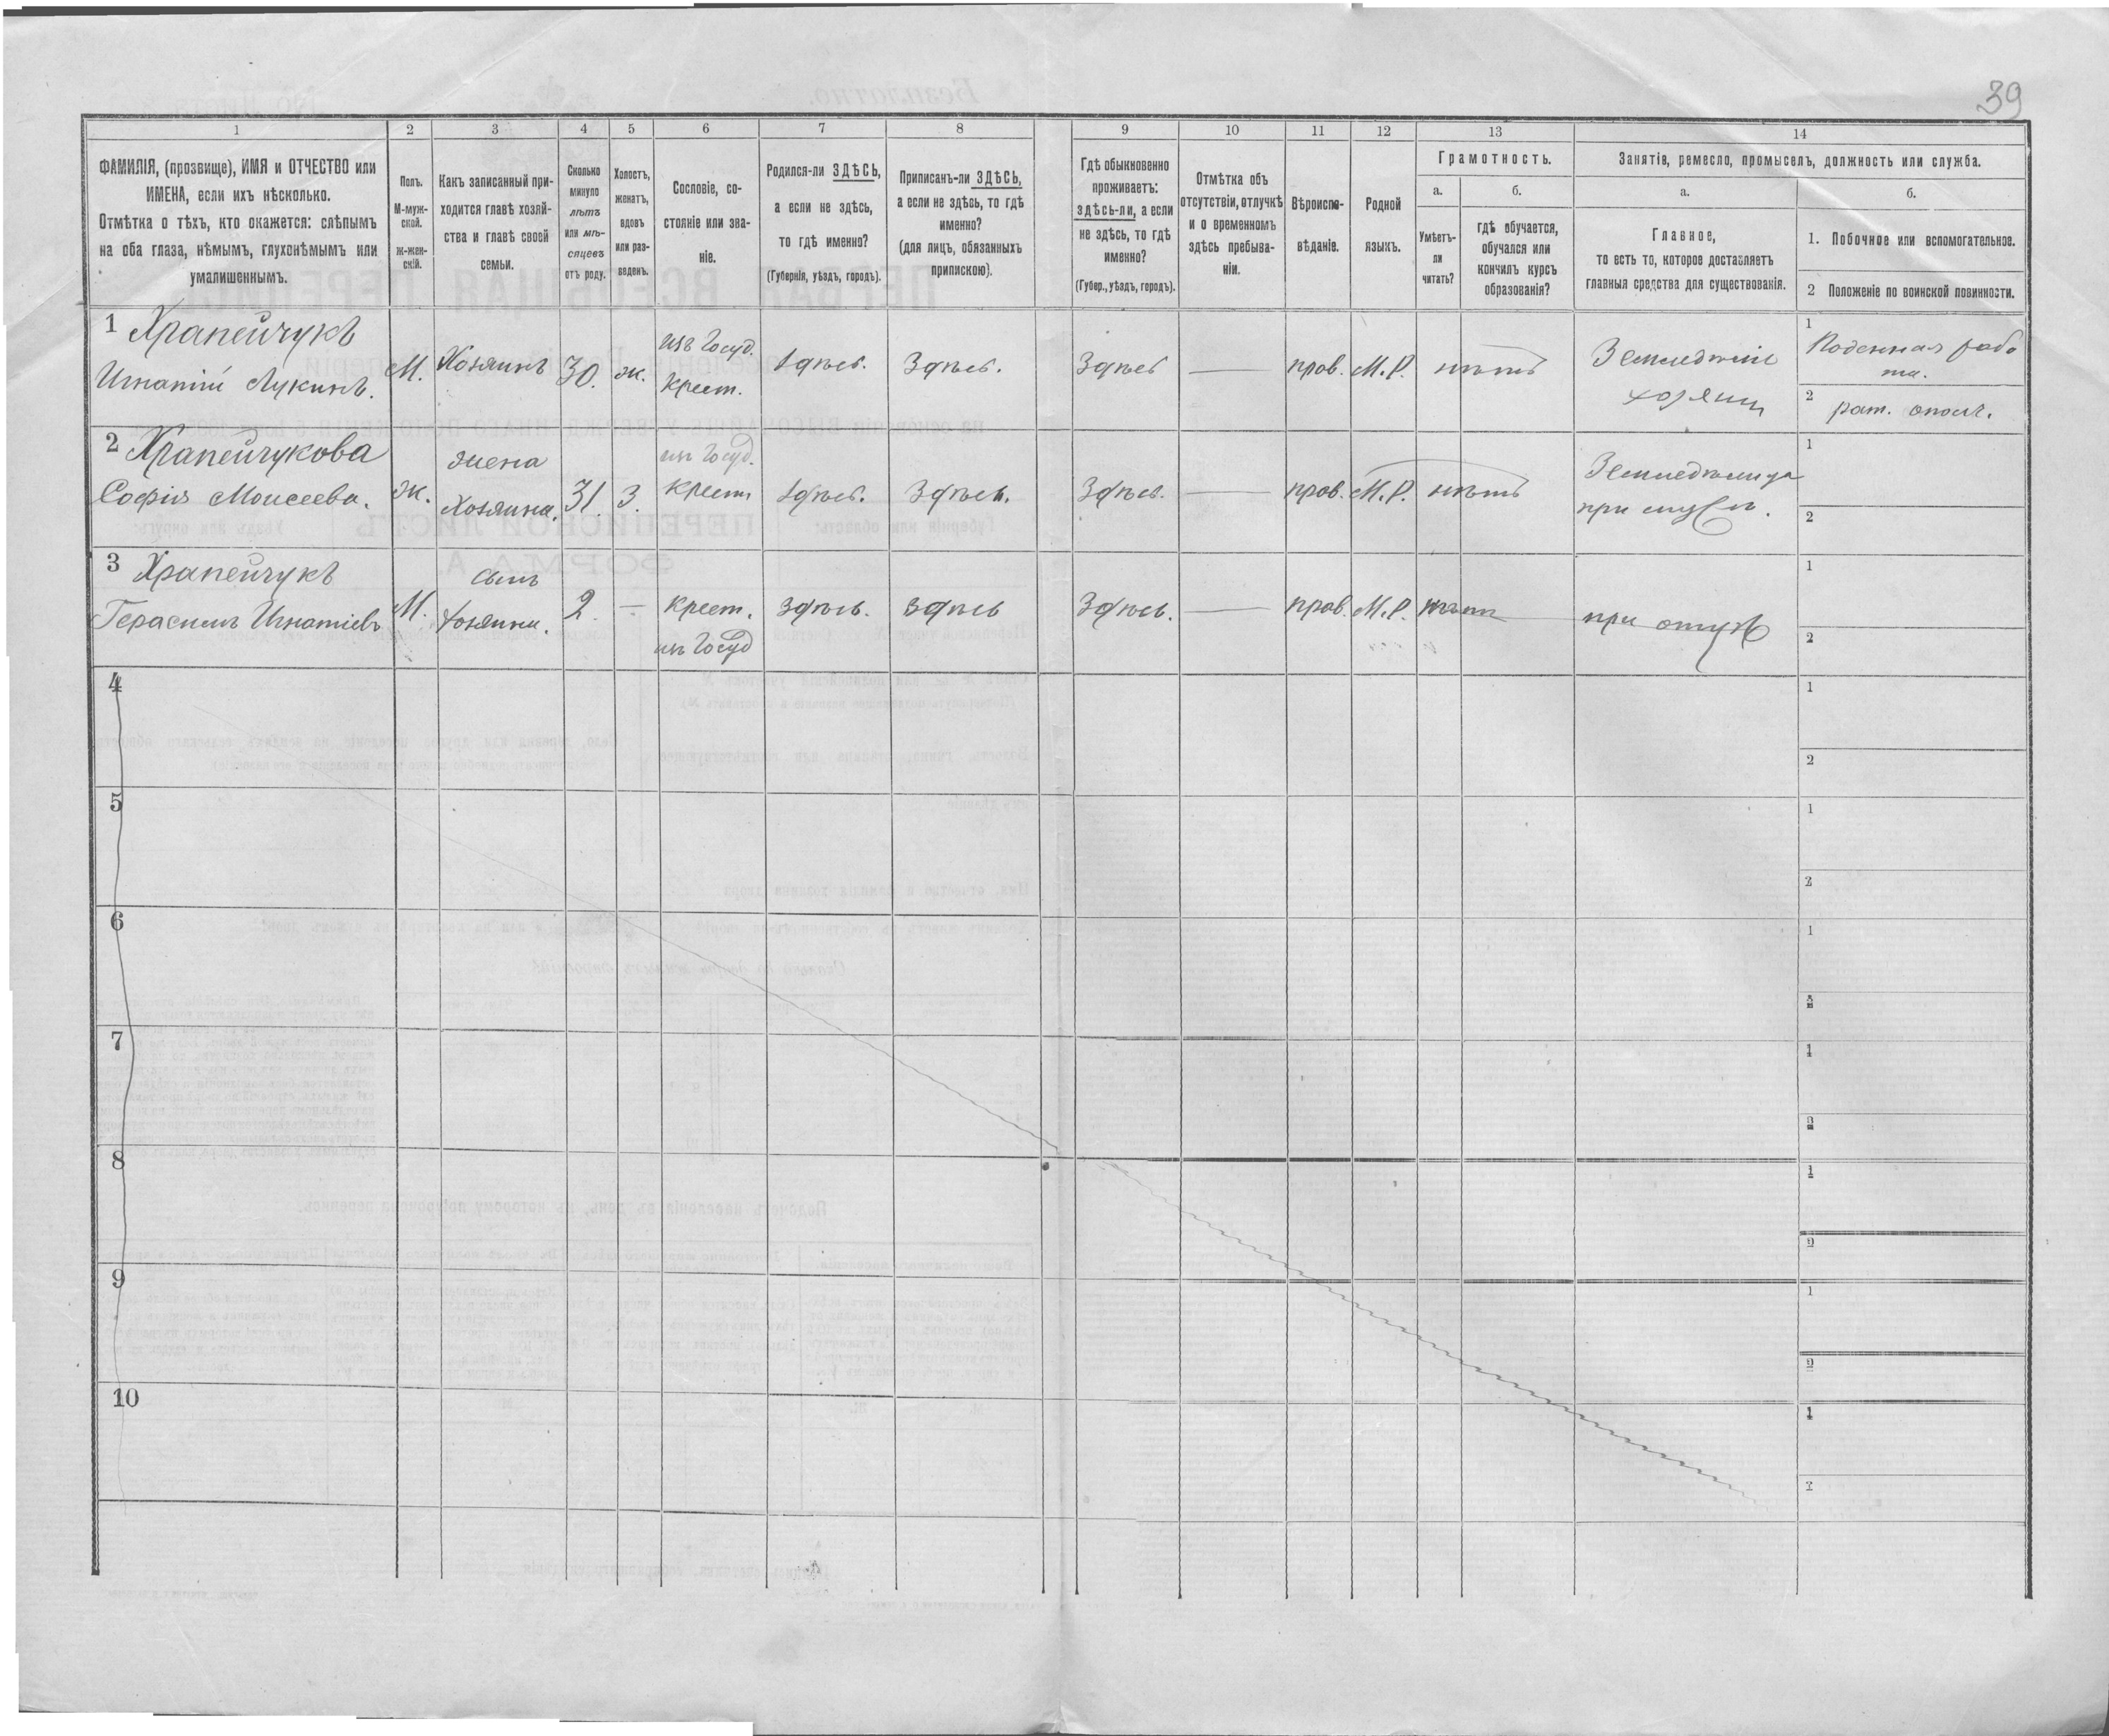 39
1 2 3 4 5 6 7 8 9 10 11 12 13 14
ФАМИЛІЯ, (прозвище), ИМЯ и ОТЧЕСТВО или
ИМЕНА, если ихъ нѣсколько.
Отмѣтка о тѣхъ, кто окажется: слѣпымъ
на оба глаза, нѣмымъ, глухонѣмымъ или
умалишеннымъ.
Полъ.
М-муж-
ской.
ж-жен-
скій.
Какъ записанный при-
ходится главѣ хозяй-
ства и главѣ своей
семьи.
Сколько
минуло
лѣтъ
или мѣ-
сяцевъ
отъ роду.
Холостъ,
женатъ,
вдовъ
или раз-
веденъ.
Сословіе, со-
стояніе или зва-
ніе.
Родился-ли ЗДѢСЬ,
а если не здѣсь,
то гдѣ именно?
(Губернія, уѣздъ, городъ).
Приписанъ-ли ЗДѢСЬ,
а если не здѣсь, то гдѣ
именно?
(для лицъ, обязанныхъ
припискою).
Гдѣ обыкновенно
проживаетъ:
здѣсь-ли, а если
не здѣсь, то гдѣ
именно?
(Губер., уѣздъ, городъ).
Отмѣтка объ
отсутствіи, отлучкѣ
и о временномъ
здѣсь пребыва-
ніи.
Вѣроиспо-
вѣданіе.
Родной
языкъ.
Грамотность.
а.
Умѣетъ-
ли
читать?
б.
гдѣ обучается,
обучался или
кончилъ курсъ
образованія?
Занятіе, ремесло, промыселъ, должность или служба.
а.
Главное,
то есть то, которое доставляетъ
главныя средства для существованія.
б.
1. Побочное или вспомогательное.
2 Положеніе по воинской повинности.
1 Храпейчукъ
Игнатій Лукинъ.
М.
Хозяинъ
30.
ж.
изъ Госуд.
крест.
Здѣсь.
Здѣсь.
Здѣсь
—
прав.
М.Р.
нѣтъ
Земледѣліе
хозяинъ
1 Поденная рабо
та.
2 рат. ополч.
2 Храпейчукова
Софія Моисеева.
ж.
жена
Хозяина.
31.
З.
изъ Госуд.
крест
Здѣсь.
Здѣсь.
Здѣсь.
—
прав.
М.Р.
нѣтъ
Земледѣлица
при мужѣ.
1
2
3 Храпейчукъ
Герасимъ Игнатіевъ
М.
сынъ
хозяина.
2.
—
крест.
изъ Госуд
Здѣсь.
Здѣсь
Здѣсь.
—
прав.
М.Р.
нѣтъ
при отцѣ
1
2
4
1
2
5
1
2
6
1
2
7
1
2
8
1
2
9
1
2
10
1
2